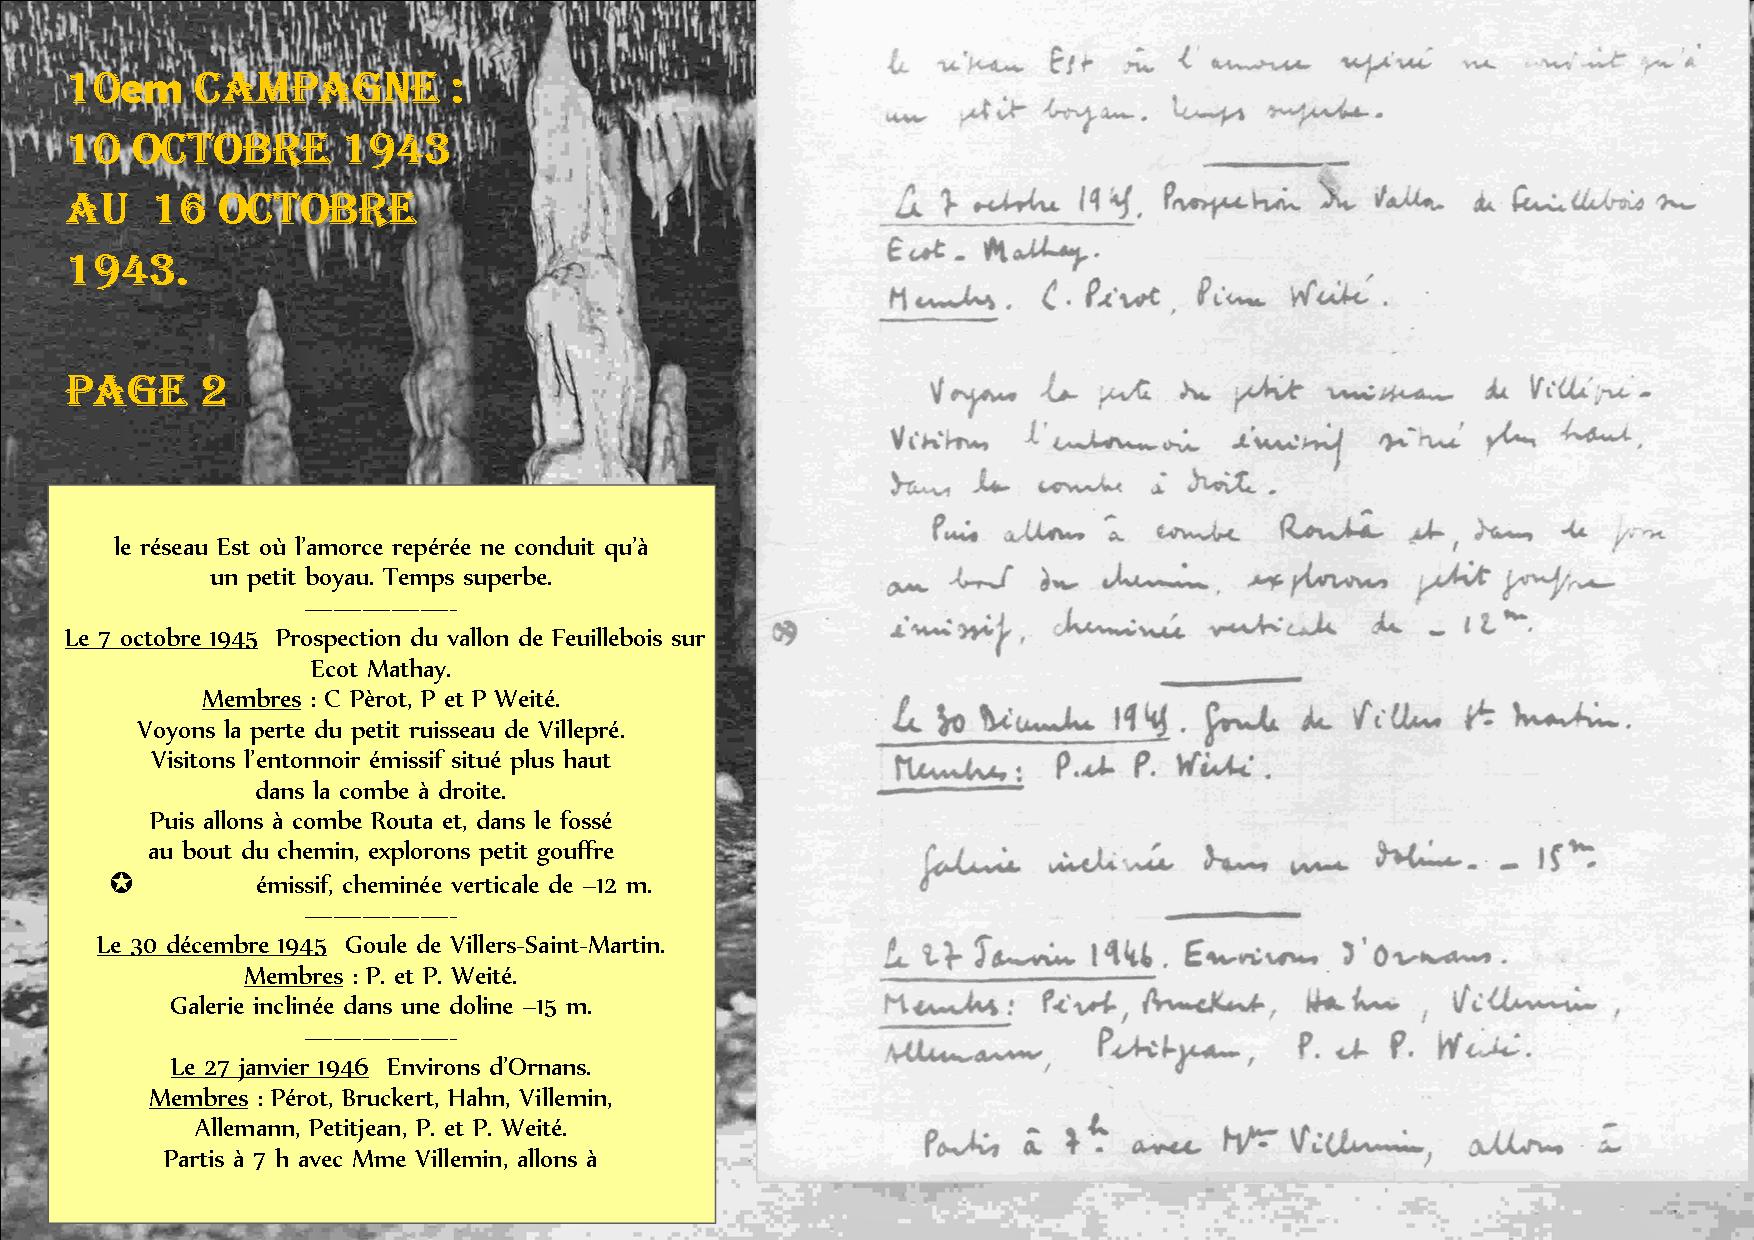 10em CAMPAGNE :
10 OCTOBRE 1943
AU 16 OCTOBRE
1943.
PAGE 2
le réseau Est où l'amorce repérée ne conduit qu'à
un petit boyau. Temps superbe.
Le 7 octobre 1945 Prospection du vallon de Feuillebois sur
Ecot Mathay.
Membres : C Pèrot, P et P Weité.
Voyons la perte du petit ruisseau de Villepré.
Visitons l'entonnoir émissif situé plus haut
dans la combe à droite.
Puis allons à combe Routa et, dans le fossé
au bout du chemin, explorons petit gouffre
✪ émissif, cheminée verticale de –12 m.
Le 30 décembre 1945 Goule de Villers-Saint-Martin.
Membres : P. et P. Weité.
Galerie inclinée dans une doline –15 m.
Le 27 janvier 1946 Environs d'Ornans.
Membres : Pérot, Bruckert, Hahn, Villemin,
Allemann, Petitjean, P. et P. Weité.
Partis à 7 h avec Mme Villemin, allons à
le réseau Est où l'amorce repérée ne conduit qu'à
un petit boyau. Temps superbe.
Le 7 octobre 1945. Prospection du Vallon de Feuillebois sur
Ecot - Mathay.
Membres. C. Pérot, Pierre Weité.
Voyons la perte du petit ruisseau de Villépré -
Visitons l'entonnoir émissif situé plus haut,
dans la combe à droite.
Puis allons à combe Routâ et, dans le fossé
au bord du chemin, explorons petit gouffre
émissif, cheminée verticale de - 12 m.
Le 30 Décembre 1945. Goule de Villers St Martin.
Membres: P. et P. Weité.
Galerie inclinée dans une doline. - 15 m.
Le 27 Janvier 1946. Environs d'Ornans.
Membres: Pérot, Bruckert, Hahn, Villemin,
Allemann, Petitjean, P. et P. Weité.
Partis à 7 h. avec Mme Villemin, allons à